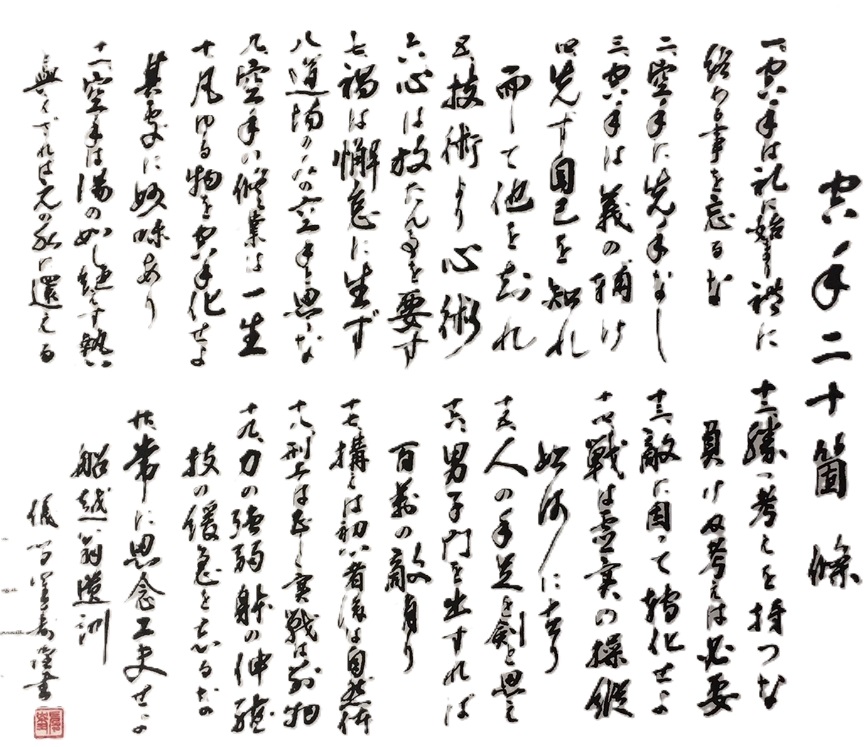 空手二十箇條
一、空手は礼に始まり礼に
終わる事を忘るな
二、空手に先手なし
三、空手は義の補け
四、先ず自己を知れ
而して他を知れ
五、技術より心術
六、心は放たん事を要す
七、禍は懈怠に生ず
八、道場のみの空手と思うな
九、空手の修業は一生
十、凡ゆる物を空手化せよ
其処に妙味あり
十一、空手は湯の如し絶えず熱
無くずれば元の水に還える
十二、勝つ考えを持つな
負けぬ考えは必要
十三、敵に因って轉化せよ
十四、戦は虚実の操縦
如何に在り
十五、人の手足を剣と思え
十六、男子門を出ずれば
百萬の敵有り
十七、構えは初心者後は自然体
十八、型は正しく実戦は別物
十九、力の強弱体の伸縮
技の緩急を忘るな
二十、常に思念工夫せよ
船越翁遺訓